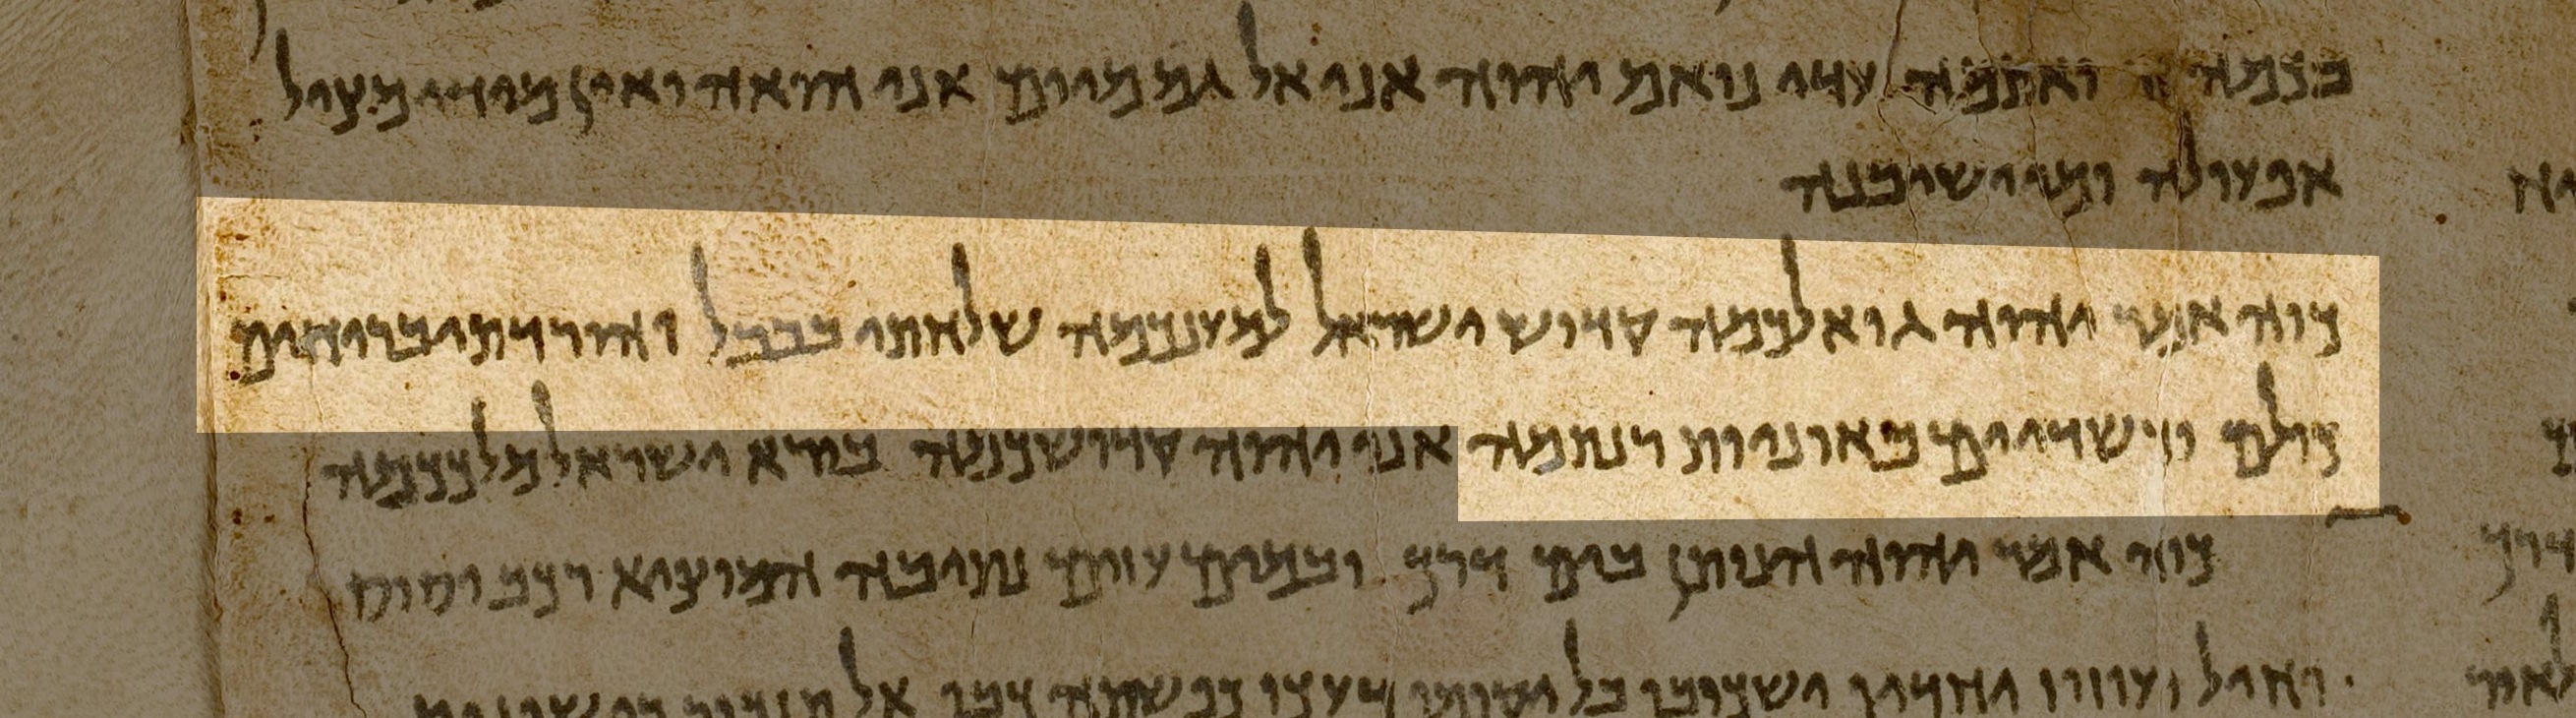 בכמה ואתמה עדי נואם יהוה אני אל גם מיום אני הואה ואין מידי מציל
אפעולה ומי ישיבנה
כוה אמר יהוה גואלכמה קדוש ישראל למענכמה שלחתי בבבל והורדתי בריחים
כולם וכשדיים באוניות רנתמה אני יהוה קדושכמה בורא ישראל מלככמה
כוה אמר יהוה הנותן בים דרך ובמים עזים נתיבה המוציא רכב וסוס
וחיל ועזוז יחדיו ישכובו בל יקומו דעכו כפשתה כבו אל